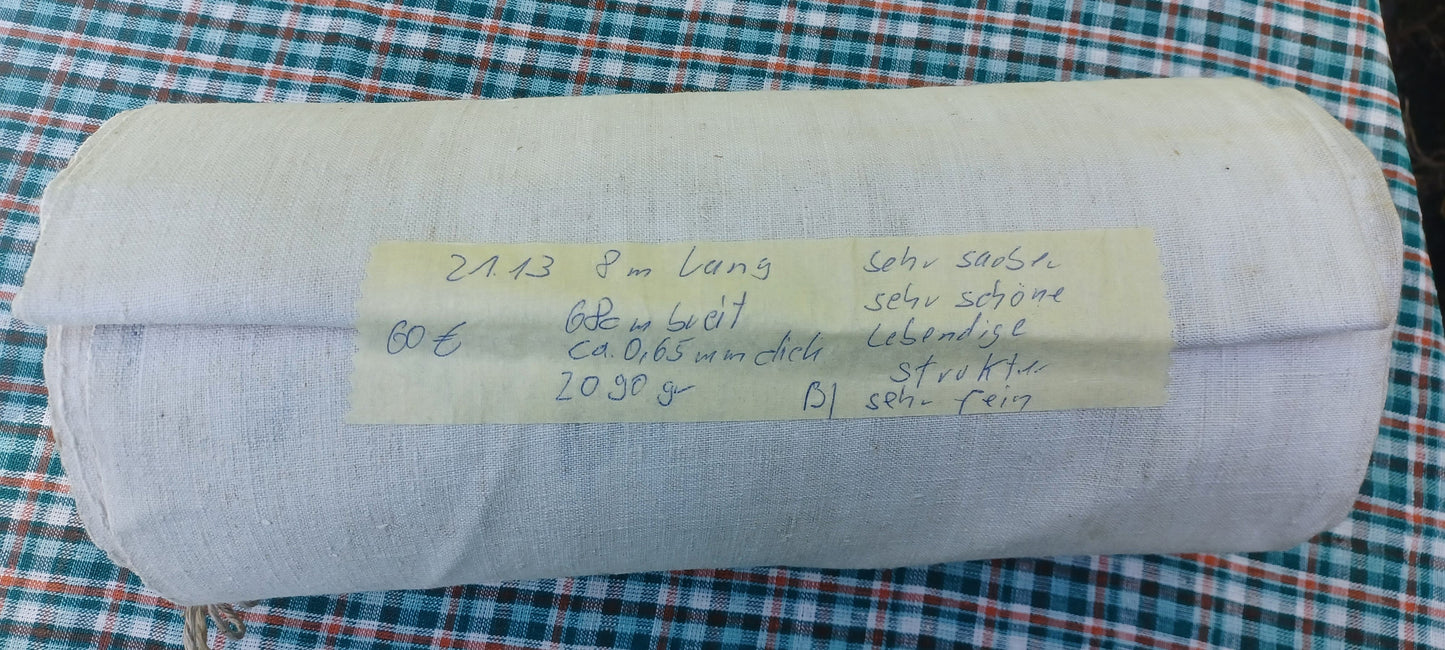 21.13 8m lang sehr sauber
sehr schöne
68cm breit
60 € lebendige
ca. 0,65 mm dick
struktur
2090 gr
B) sehr fein